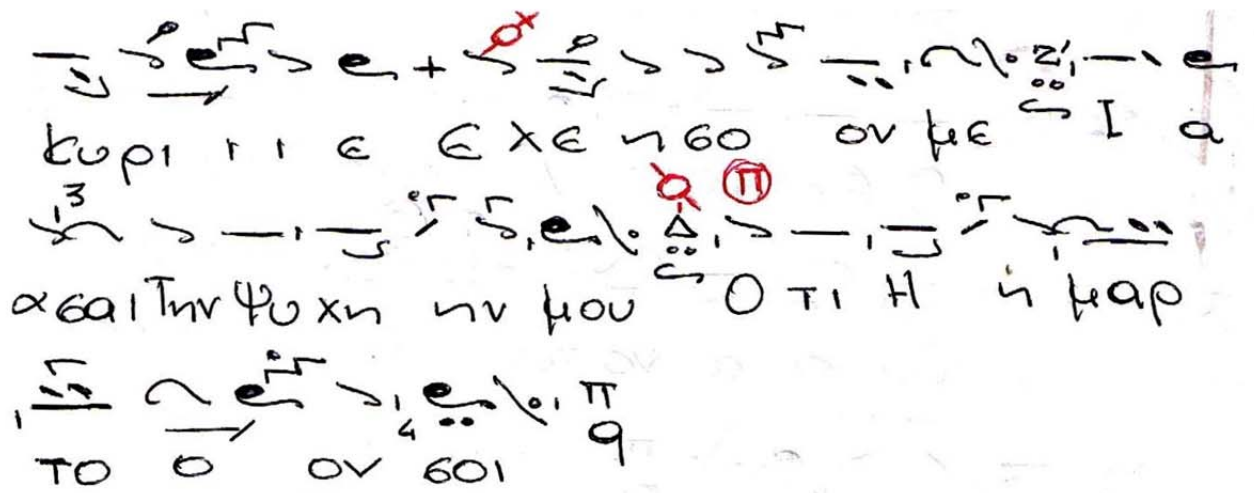 Κυρι ι ι ε ε λε η σο ον με Ι α
α σαι Την ψυ χη ην μου Ο τι Η η μαρ
το ο ον σοι